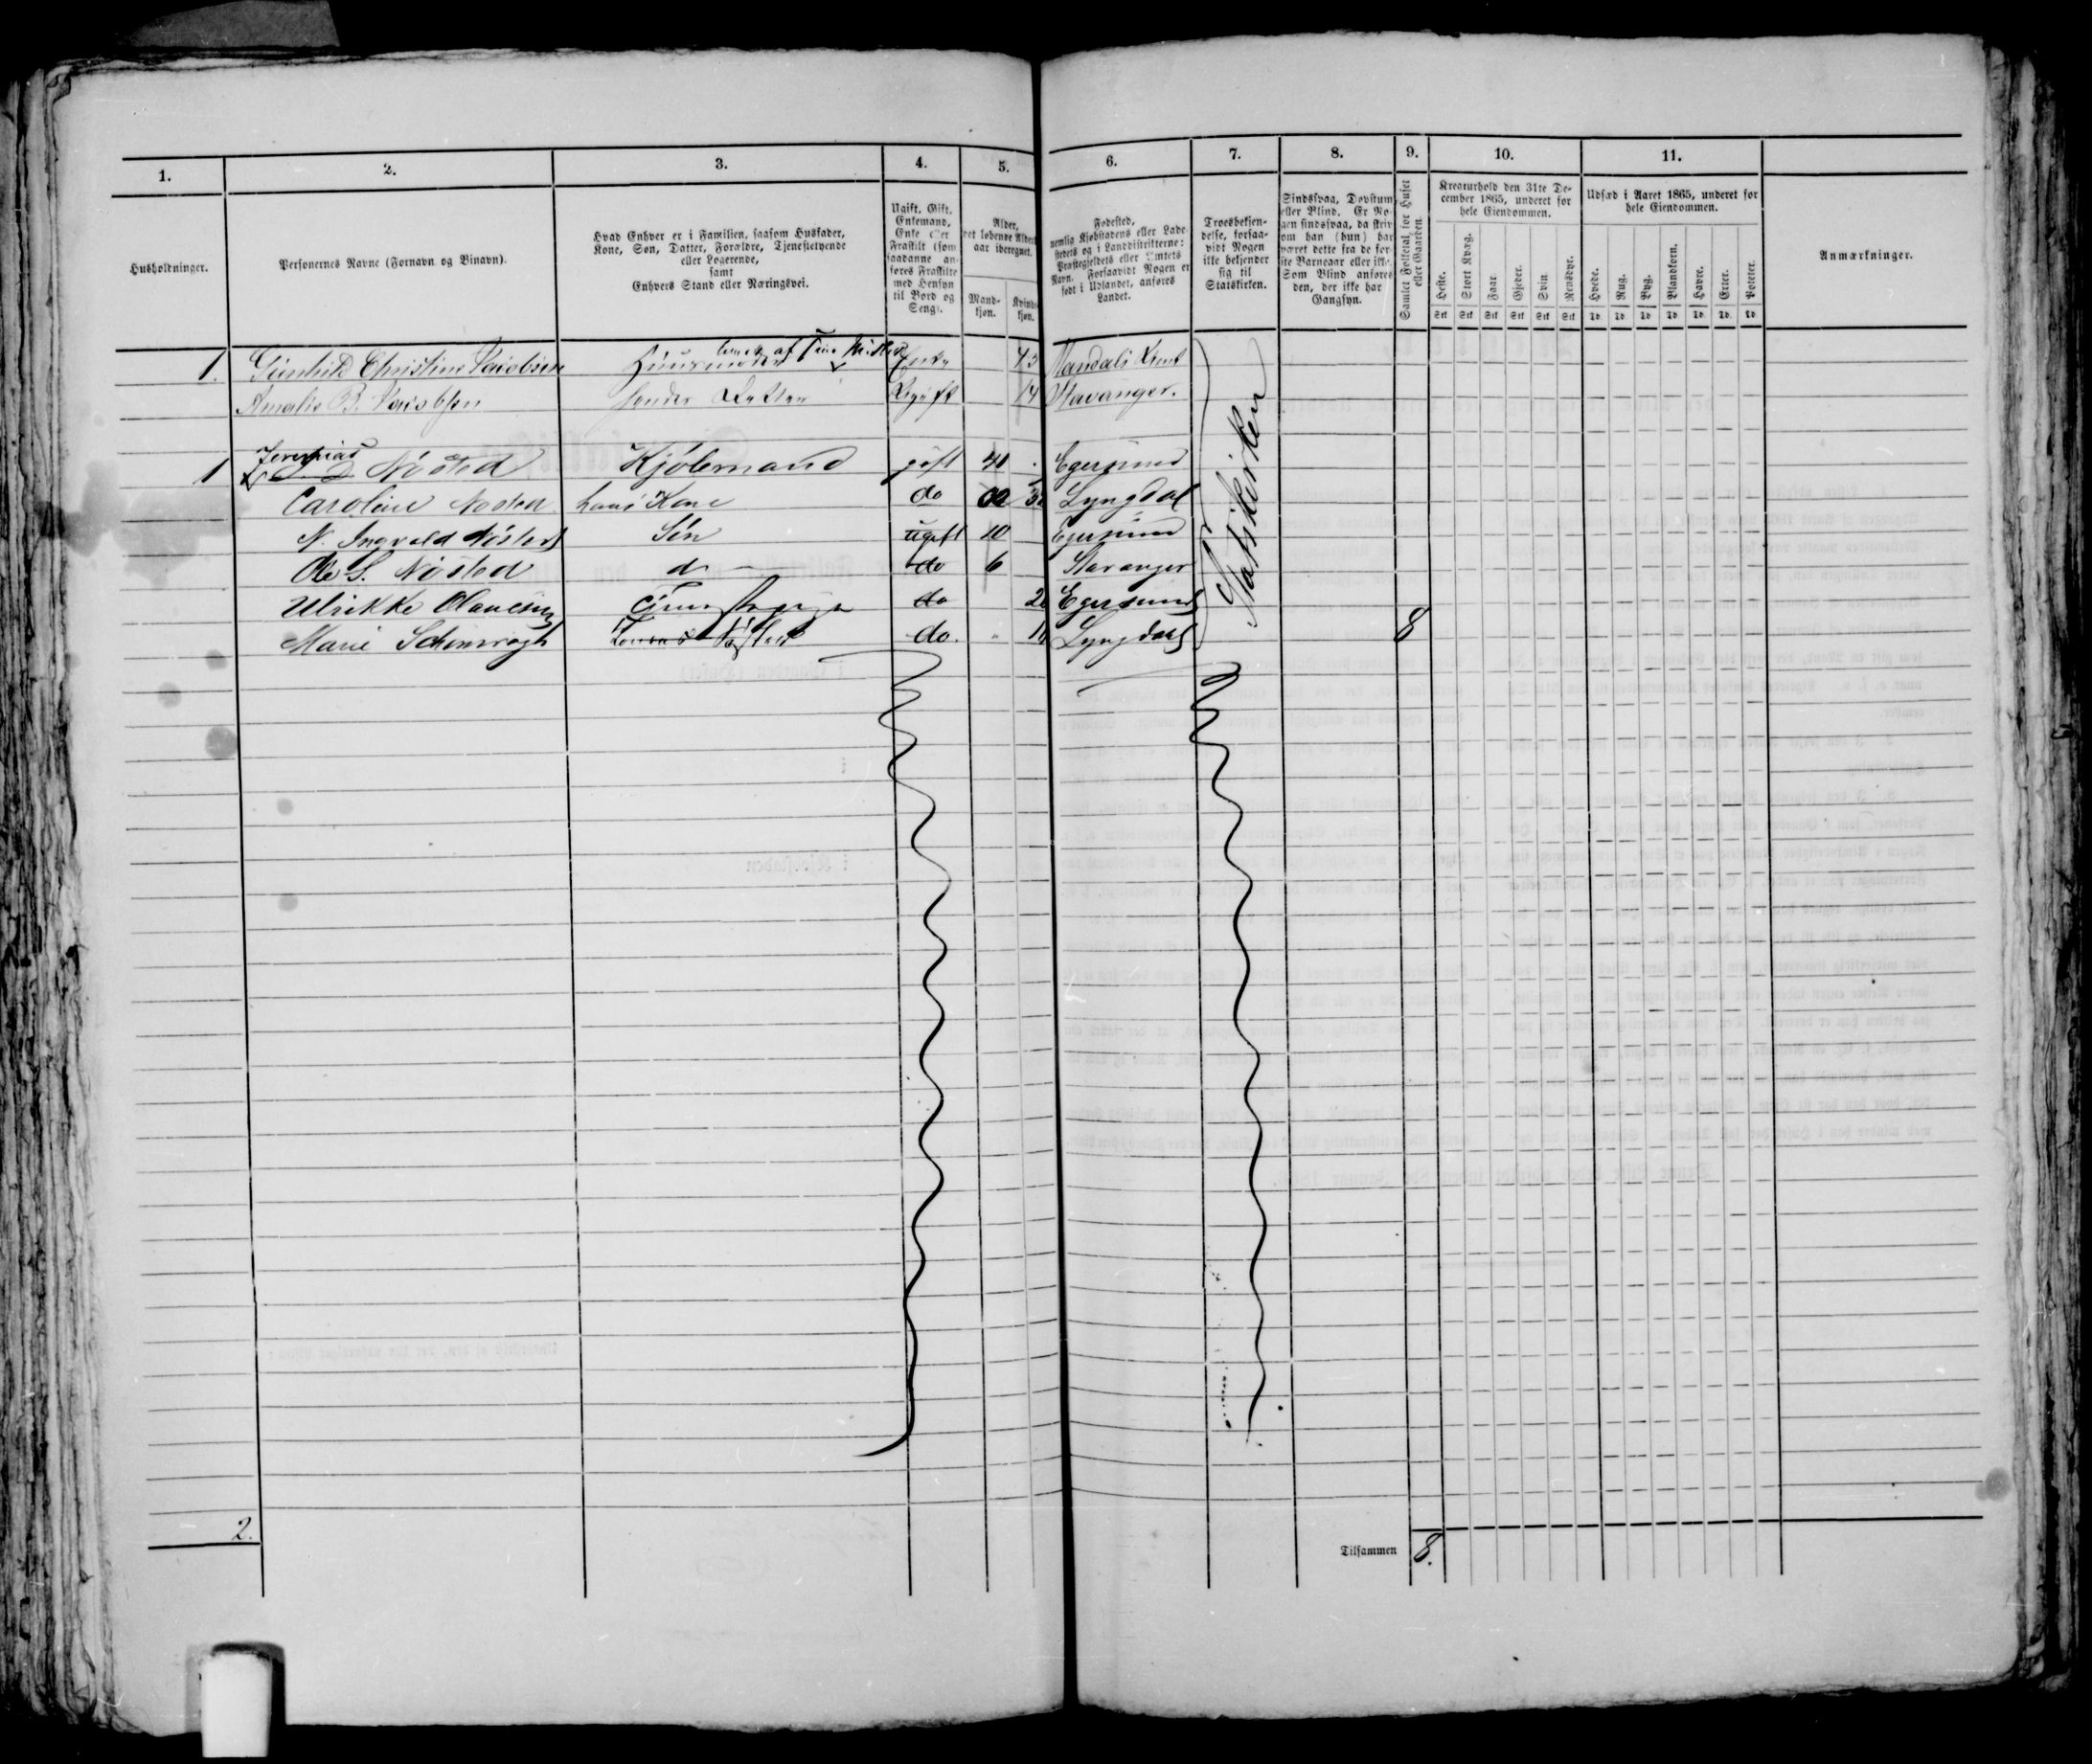 1. 2. 3. 4. 5. 6. 7. 8. 9. 10. 11.
Husholdninger.
Personernes Navne (Fornavn og Binavn).
Hvad Enhver er i Familien, saasom Husfader,
Kone, Søn, Datter, Forældre, Tjenestetyende
eller Logerende,
samt
Enhvers Stand eller Næringsvei.
Ugift, Gift,
Enkemand,
Enke eller
Fraskilt (som
saadanne an-
føres Fraskilte
med Hensyn
til Bord og
Seng).
Alder,
det løbende Alders-
aar iberegnet.
Mand-
kjøn.
Kvinde-
kjøn.
Fødested,
nemlig Kjøbstadens eller Lade-
stedets og i Landdistrikterne:
Præstegjeldets eller Amtets
Navn. Forsaavidt Nogen er
født i Udlandet, anføres
Landet.
Troesbekjen-
delse, forsaa-
vidt Nogen
ikke bekjender
sig til
Statskirken.
Sindssvag, Døvstum
eller Blind. Er No-
gen sindssvag, da skriv
om han (hun) har
været dette fra de før-
ste Barneaar eller ikke.
Som Blind anføres
den, der ikke har
Gangsyn.
Samlet Folketal for Huset
eller Gaarden.
Kreaturhold den 31te De-
cember 1865, underet for
hele Eiendommen.
Heste. Stort Kvæg. Faar. Gjeder. Svin. Rensdyr.
Stk Stk Stk Stk Stk Stk
Udsæd i Aaret 1865, underet for
hele Eiendommen.
Hvede. Rug. Byg. Blandkorn. Havre. Erter. Poteter.
Td. Td. Td. Td. Td. Td. Td.
Anmærkninger.
1. Gunhild Christine Jacobsen Huusmoder Enke 43 Mandals
Amalie B. Jacobsen hendes Datter Ugift 14 Stavanger.
Jeremias
1 D. Nøsted Kjøbmand gift 41 Egersund
Caroline Nøsted hans Kone do Lyngdal
N. Ingvald Nøsted Søn ugift 10 Egersund
Ole S. Nøsted do 6 Stavanger
Ulrikke do Egersund
Marie do. Lyngdal 8
Statskirken
2.
Tilsammen 8.